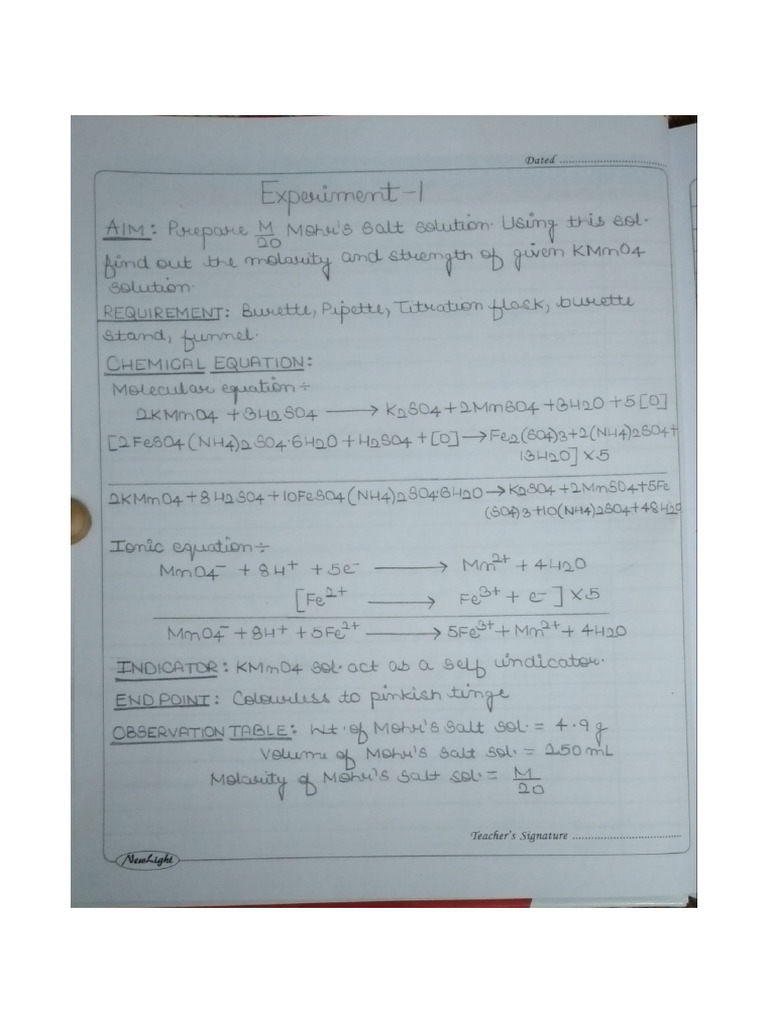 Dated
Experiment-1
AIM: Prepare M/20 Mohr's Salt Solution. Using this sol.
find out the molarity and strength of given KMnO4
solution.
REQUIREMENT: Burette, Pipette, Titration flask, burette
stand, funnel.
CHEMICAL EQUATION:
Molecular equation ÷
2KMnO4 + 3H2SO4 → K2SO4 + 2MnSO4 + 3H2O + 5[O]
[2FeSO4(NH4)2SO4·6H2O + H2SO4 + [O] → Fe2(SO4)3 + 2(NH4)2SO4 +
13H2O] × 5
2KMnO4 + 8H2SO4 + 10FeSO4(NH4)2SO4·6H2O → K2SO4 + 2MnSO4 + 5Fe
(SO4)3 + 10(NH4)2SO4 + 48H2O
Ionic equation ÷
MnO4⁻ + 8H⁺ + 5e⁻ → Mn²⁺ + 4H2O
[Fe²⁺ → Fe³⁺ + e⁻] × 5
MnO4⁻ + 8H⁺ + 5Fe²⁺ → 5Fe³⁺ + Mn²⁺ + 4H2O
INDICATOR: KMnO4 sol. act as a self indicator.
END POINT: Colourless to pinkish tinge
OBSERVATION TABLE: Wt. of Mohr's Salt sol. = 4.9 g
Volume of Mohr's Salt sol. = 250 mL
Molarity of Mohr's Salt sol. = M/20
Teacher's Signature
NewLight